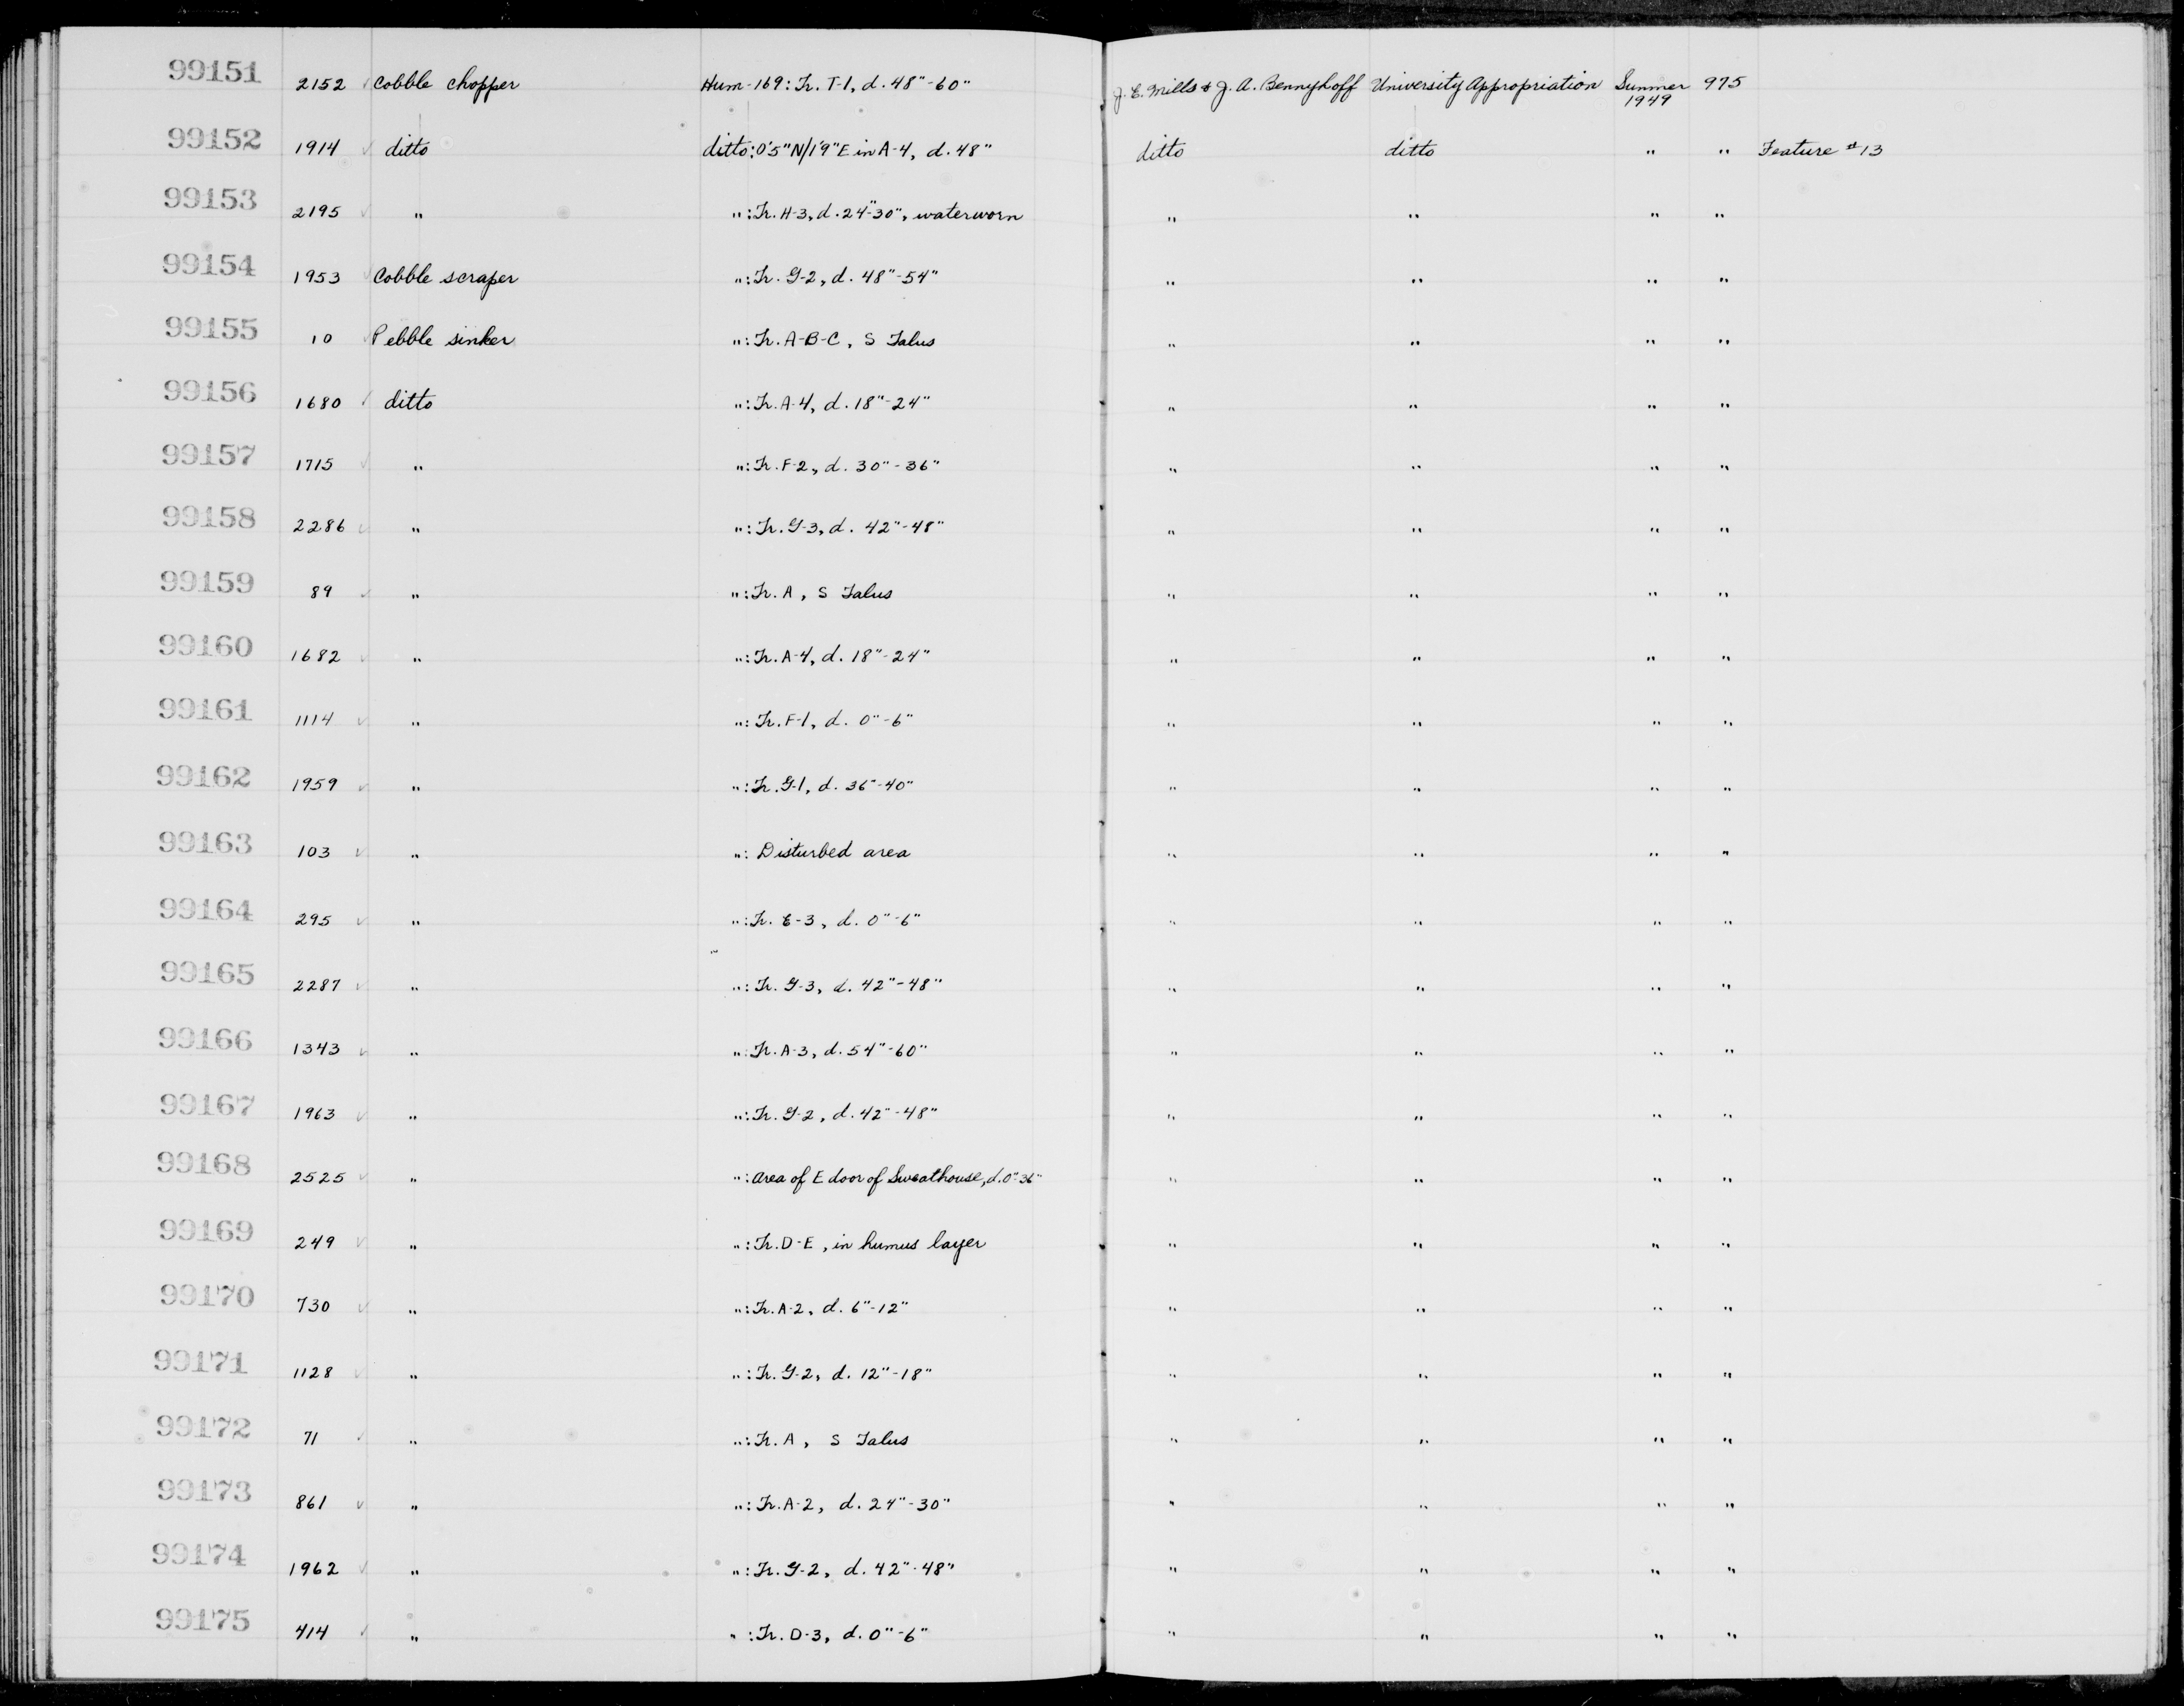 99151 2152 Cobble chopper Hum-169: Tr. T-1, d. 48"-60" J. E. Mills & J. A. Bennyhoff University Appropriation Summer 1949 975
99152 1914 ditto ditto: 0'5"N/1'9"E in A-4, d. 48" ditto ditto " " Feature #13
99153 2195 " ": Tr. H-3, d. 24"-30", waterworn " " " "
99154 1953 Cobble scraper ": Tr. G-2, d. 48"-54" " " " "
99155 10 Pebble sinker ": Tr. A-B-C, S Talus " " " "
99156 1680 ditto ": Tr. A-4, d. 18"-24" " " " "
99157 1715 " ": Tr. F-2, d. 30"-36" " " " "
99158 2286 " ": Tr. G-3, d. 42"-48" " " " "
99159 89 " ": Tr. A, S Talus " " " "
99160 1682 " ": Tr. A-4, d. 18"-24" " " " "
99161 1114 " ": Tr. F-1, d. 0"-6" " " " "
99162 1959 " ": Tr. G-1, d. 36"-40" " " " "
99163 103 " ": Disturbed area " " " "
99164 295 " ": Tr. E-3, d. 0"-6" " " " "
99165 2287 " ": Tr. G-3, d. 42"-48" " " " "
99166 1343 " ": Tr. A-3, d. 54"-60" " " " "
99167 1963 " ": Tr. G-2, d. 42"-48" " " " "
99168 2525 " ": Area of E door of Sweathouse, d. 0"-36" " " " "
99169 249 " ": Tr. D-E, in humus layer " " " "
99170 730 " ": Tr. A-2, d. 6"-12" " " " "
99171 1128 " ": Tr. G-2, d. 12"-18" " " " "
99172 71 " ": Tr. A, S Talus " " " "
99173 861 " ": Tr. A-2, d. 24"-30" " " " "
99174 1962 " ": Tr. G-2, d. 42"-48" " " " "
99175 414 " ": Tr. D-3, d. 0"-6" " " " "